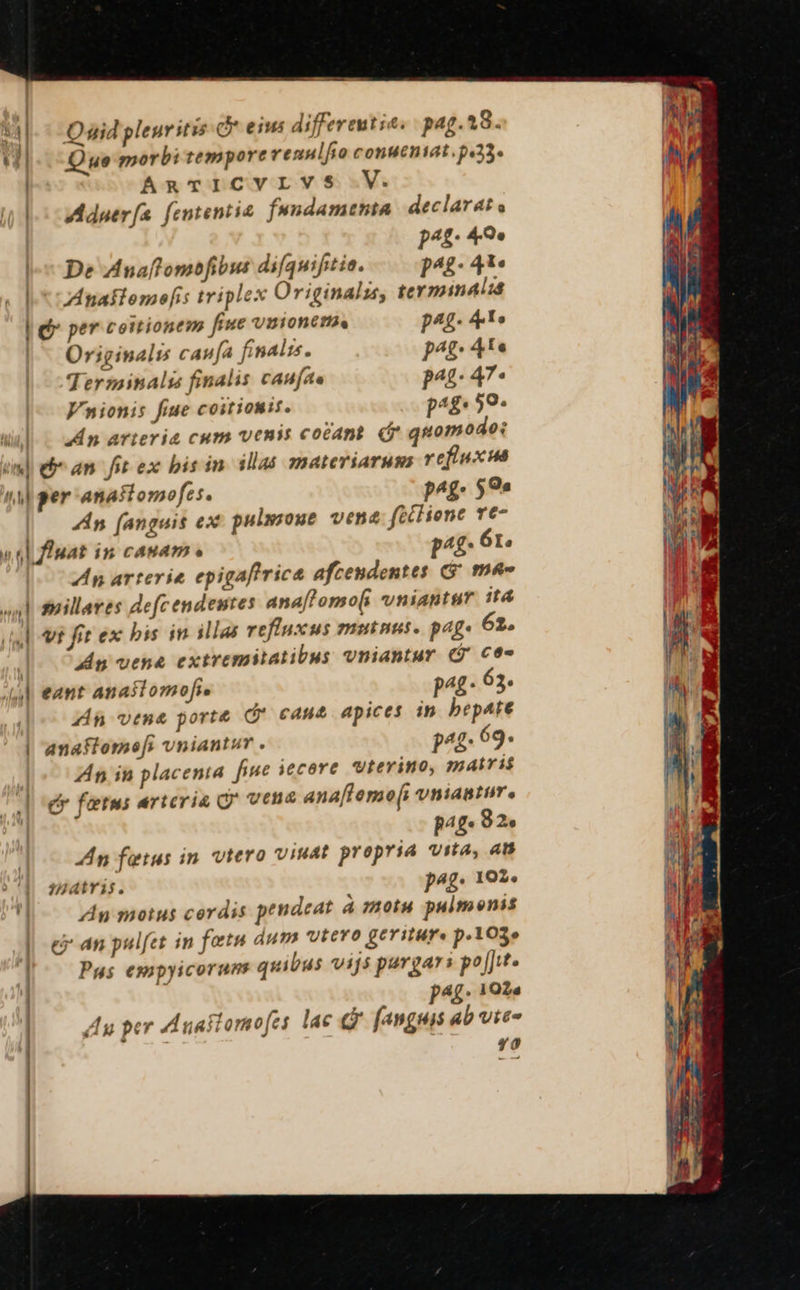 Quid pleuritis & eius differentia. pag.28.
Quo morbi tempore reuulſio conueniat.p.33.
ARTICVLVS V.
Aduerſæ ſententiæ fundamenta declarat.
pag. 40.
De Anaſtomoſibus diſquiſitio. pag. 41.
Anaſtomoſis triplex Originalis, terminalis
& per coitionem ſiue vnionem. pag. 41.
Originalis cauſa finalis. pag. 41.
Terminalis finalis cauſa. pag. 47.
Vnionis ſiue coitionis. pag. 50.
An arteriæ cum venis coëant & quomodo:
& an fit ex his in illas materiarum refluxus
per anaſtomoſes. pag. 50.
An ſanguis ex pulmone venæ ſectione re-
fluat in cauam. pag. 61.
An arteriæ epigaſtricæ aſcendentes & ma-
millares deſcendentes anaſtomoſi vniantur ita
vt fit ex his in illas refluxus mutuus. pag. 62.
An venæ extremitatibus vniantur & co-
eant anaſtomoſi. pag. 63.
An venæ portæ & cauæ apices in hepate
anaſtomoſi vniantur. pag. 69.
An in placenta ſiue iecore vterino, matris
& fœtus arteriæ & venæ anaſtomoſi vniantur.
pag. 82.
An fœtus in vtero viuat propria vita, an
matris. pag. 102.
An motus cordis pendeat à motu pulmonis
& an pulſet in fœtu dum vtero geritur. p.103.
Pus empyicorum quibus vijs purgari poſſit.
pag. 102.
An per Anaſtomoſes lac & ſanguis ab vte-
ro